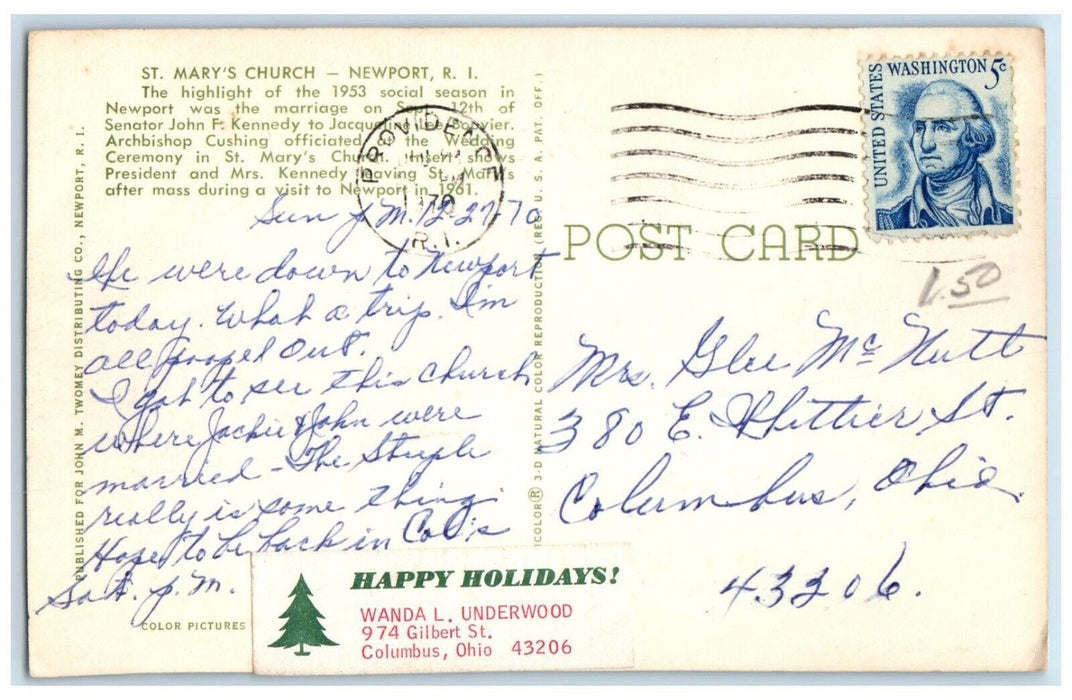 ST. MARY'S CHURCH — NEWPORT, R. I.
The highlight of the 1953 social season in
Newport was the marriage on Sept. 12th of
Senator John F. Kennedy to Jacqueline Lee Bouvier.
Archbishop Cushing officiated at the Wedding
Ceremony in St. Mary's Church. Insert shows
President and Mrs. Kennedy leaving St. Mary's
after mass during a visit to Newport in 1961.
PROVIDENCE
PM
1970
R.I.
UNITED STATES
WASHINGTON 5c
POST CARD
1.50
Sun P.M. 12-27-70
We were down to Newport
today. What a trip. I'm
all pooped out.
I got to see this church
where Jackie & John were
married - The Steeple
really is some thing.
Hope to be back in Col's
Sat. p.m.
Mrs. Glee McNutt
380 E. Whittier St.
Columbus, Ohio.
43206.
PUBLISHED FOR JOHN M. TWOMEY DISTRIBUTING CO., NEWPORT, R. I.
ICOLOR® 3-D NATURAL COLOR REPRODUCTION (REG. U. S. A. PAT. OFF.)
COLOR PICTURES
HAPPY HOLIDAYS!
WANDA L. UNDERWOOD
974 Gilbert St.
Columbus, Ohio 43206